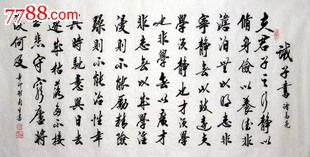 誡子書 諸葛亮
夫君子之行靜以
脩身儉以養德非
澹泊无以明志非
寧靜无以致遠夫
學須靜也才須學
也非學无以廣才
非志无以成學
慢則不能
躁則不能冶性年
與時馳意與日去
遂成枯落多不接
世悲守窮廬將
復何及